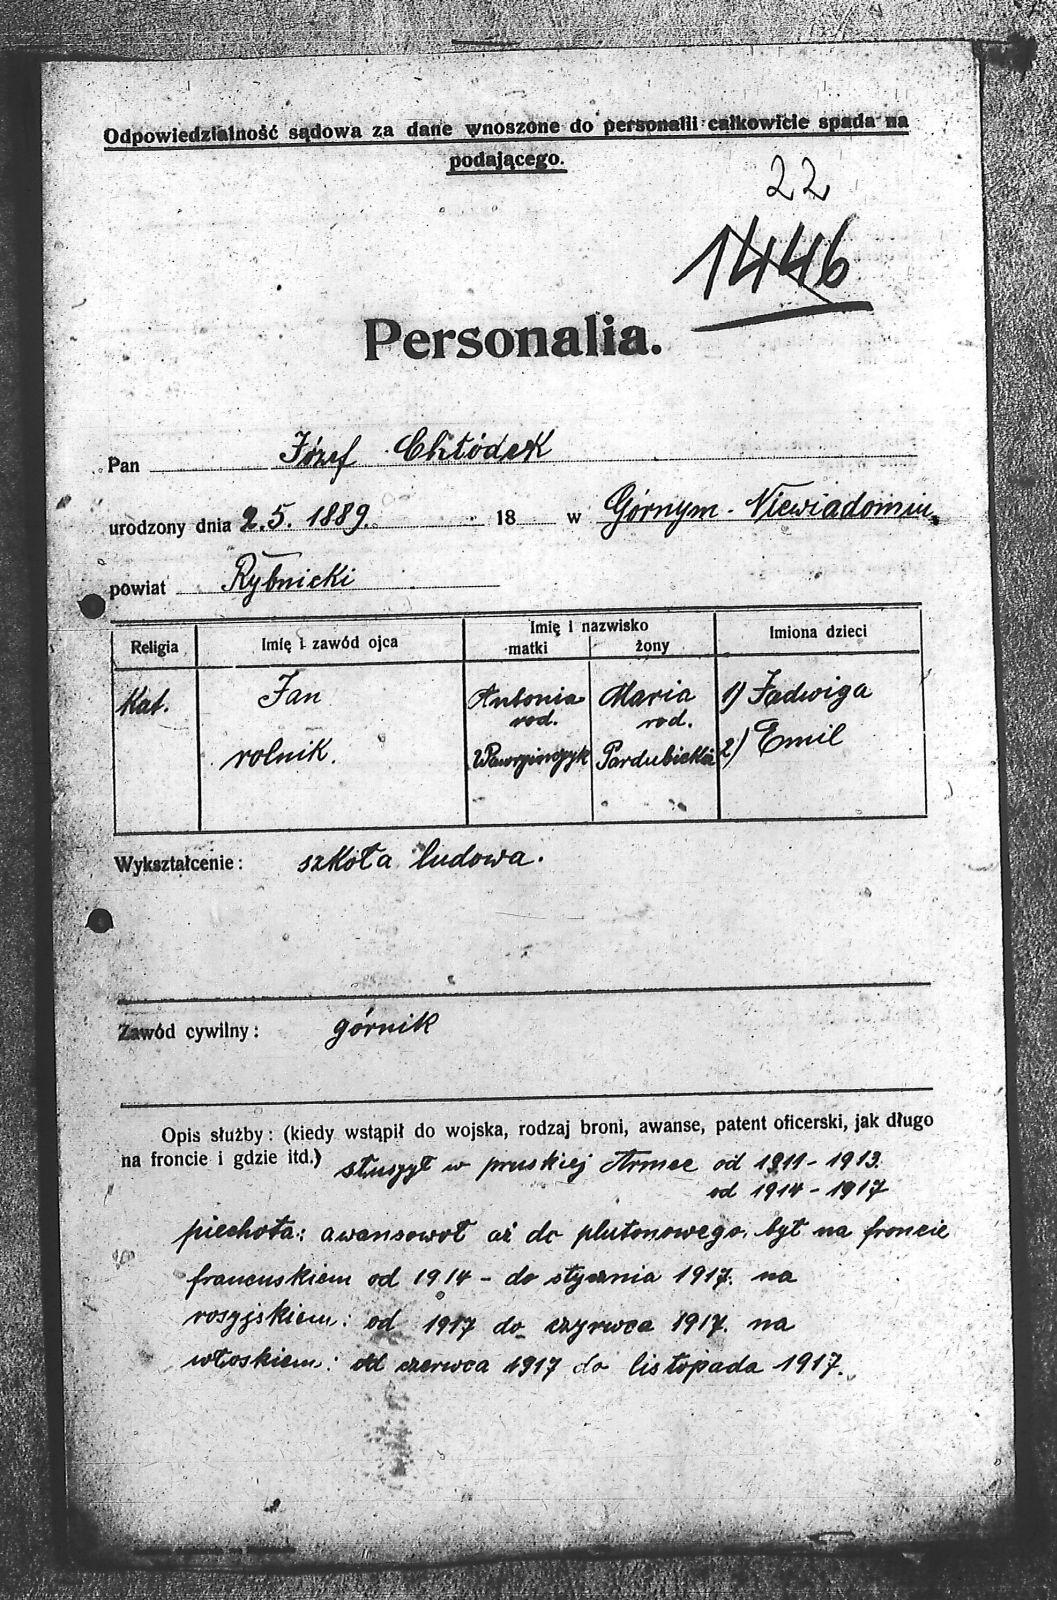 Odpowiedzialność sądowa za dane wnoszone do personalii całkowicie spada na
podającego.
22
1446
Personalia.
Pan Józef Chłódek
urodzony dnia 2.5. 1889. 18 w Górnym-Niewiadomiu,
powiat Rybnicki
Religia
Imię i zawód ojca
Imię i nazwisko
matki
żony
Imiona dzieci
Kat.
Jan
rolnik.
Antonia
rod.
Wawrzinczyk
Maria
rod.
Pardubicka
1) Jadwiga
2) Emil
Wykształcenie: szkoła ludowa.
Zawód cywilny: górnik
Opis służby: (kiedy wstąpił do wojska, rodzaj broni, awanse, patent oficerski, jak długo
na froncie i gdzie itd.) służył w pruskiej Armee od 1911-1913.
od 1914-1917
piechota: awansowoł aż do plutonowego. był na froncie
francuskiem od 1914 - do stycznia 1917. na
rosyjskiem: od 1917 do czyrwca 1917. na
włoskiem: od czerwca 1917 do listopada 1917.